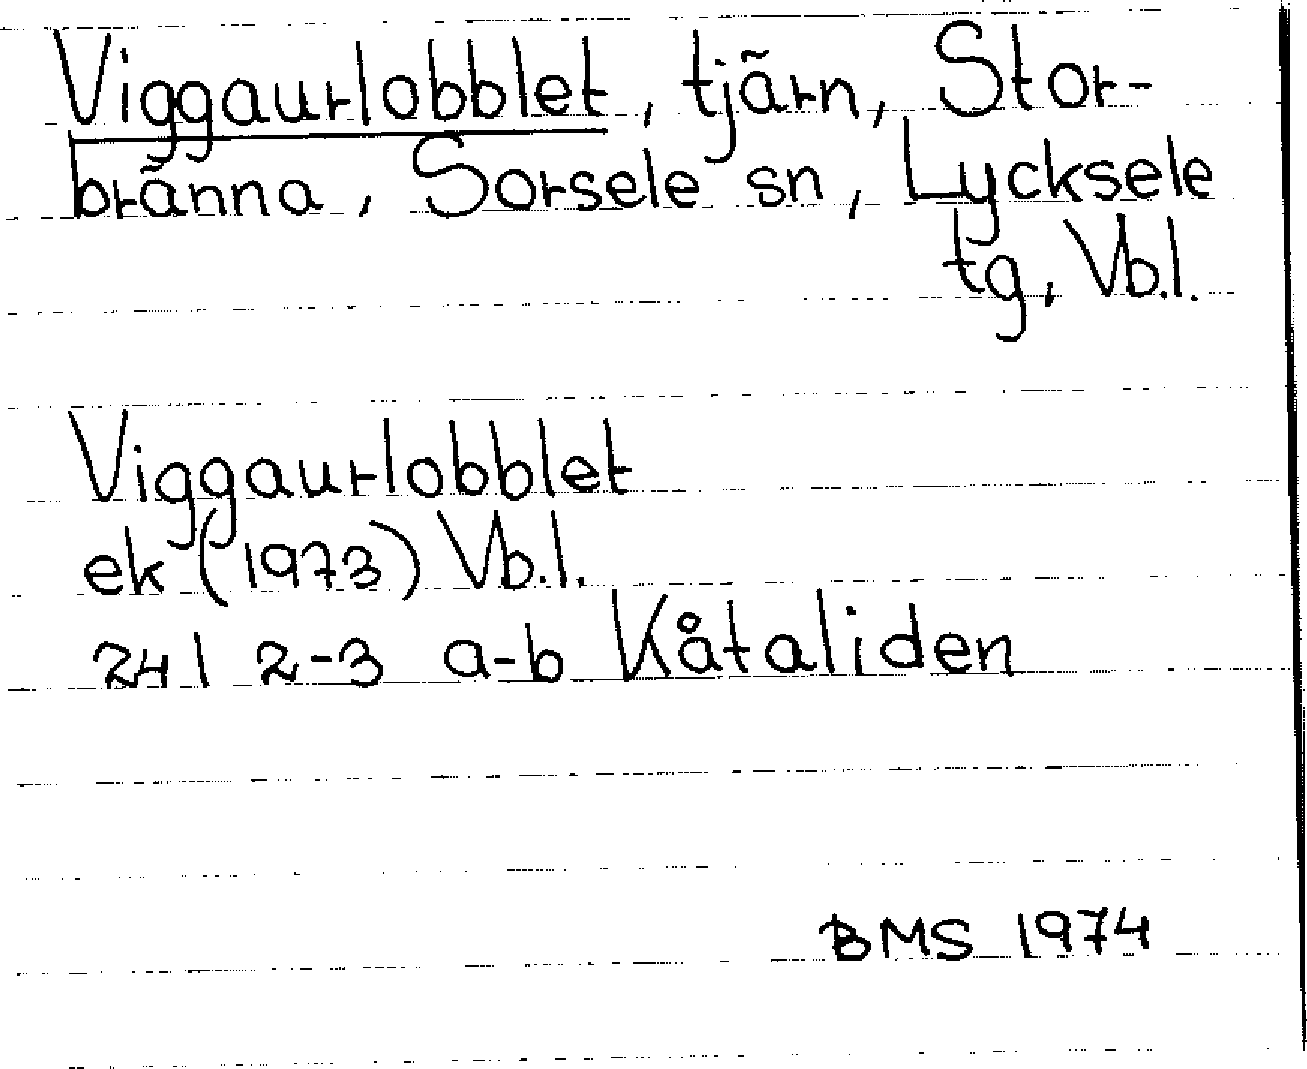 Viggaurlobblet, tjärn, Stor-
bränna, Sorsele sn, Lycksele
tg, Vb.l.
Viggaurlobblet
ek (1973) Vb.l.
24I 2-3 a-b Kåtaliden
BMS 1974